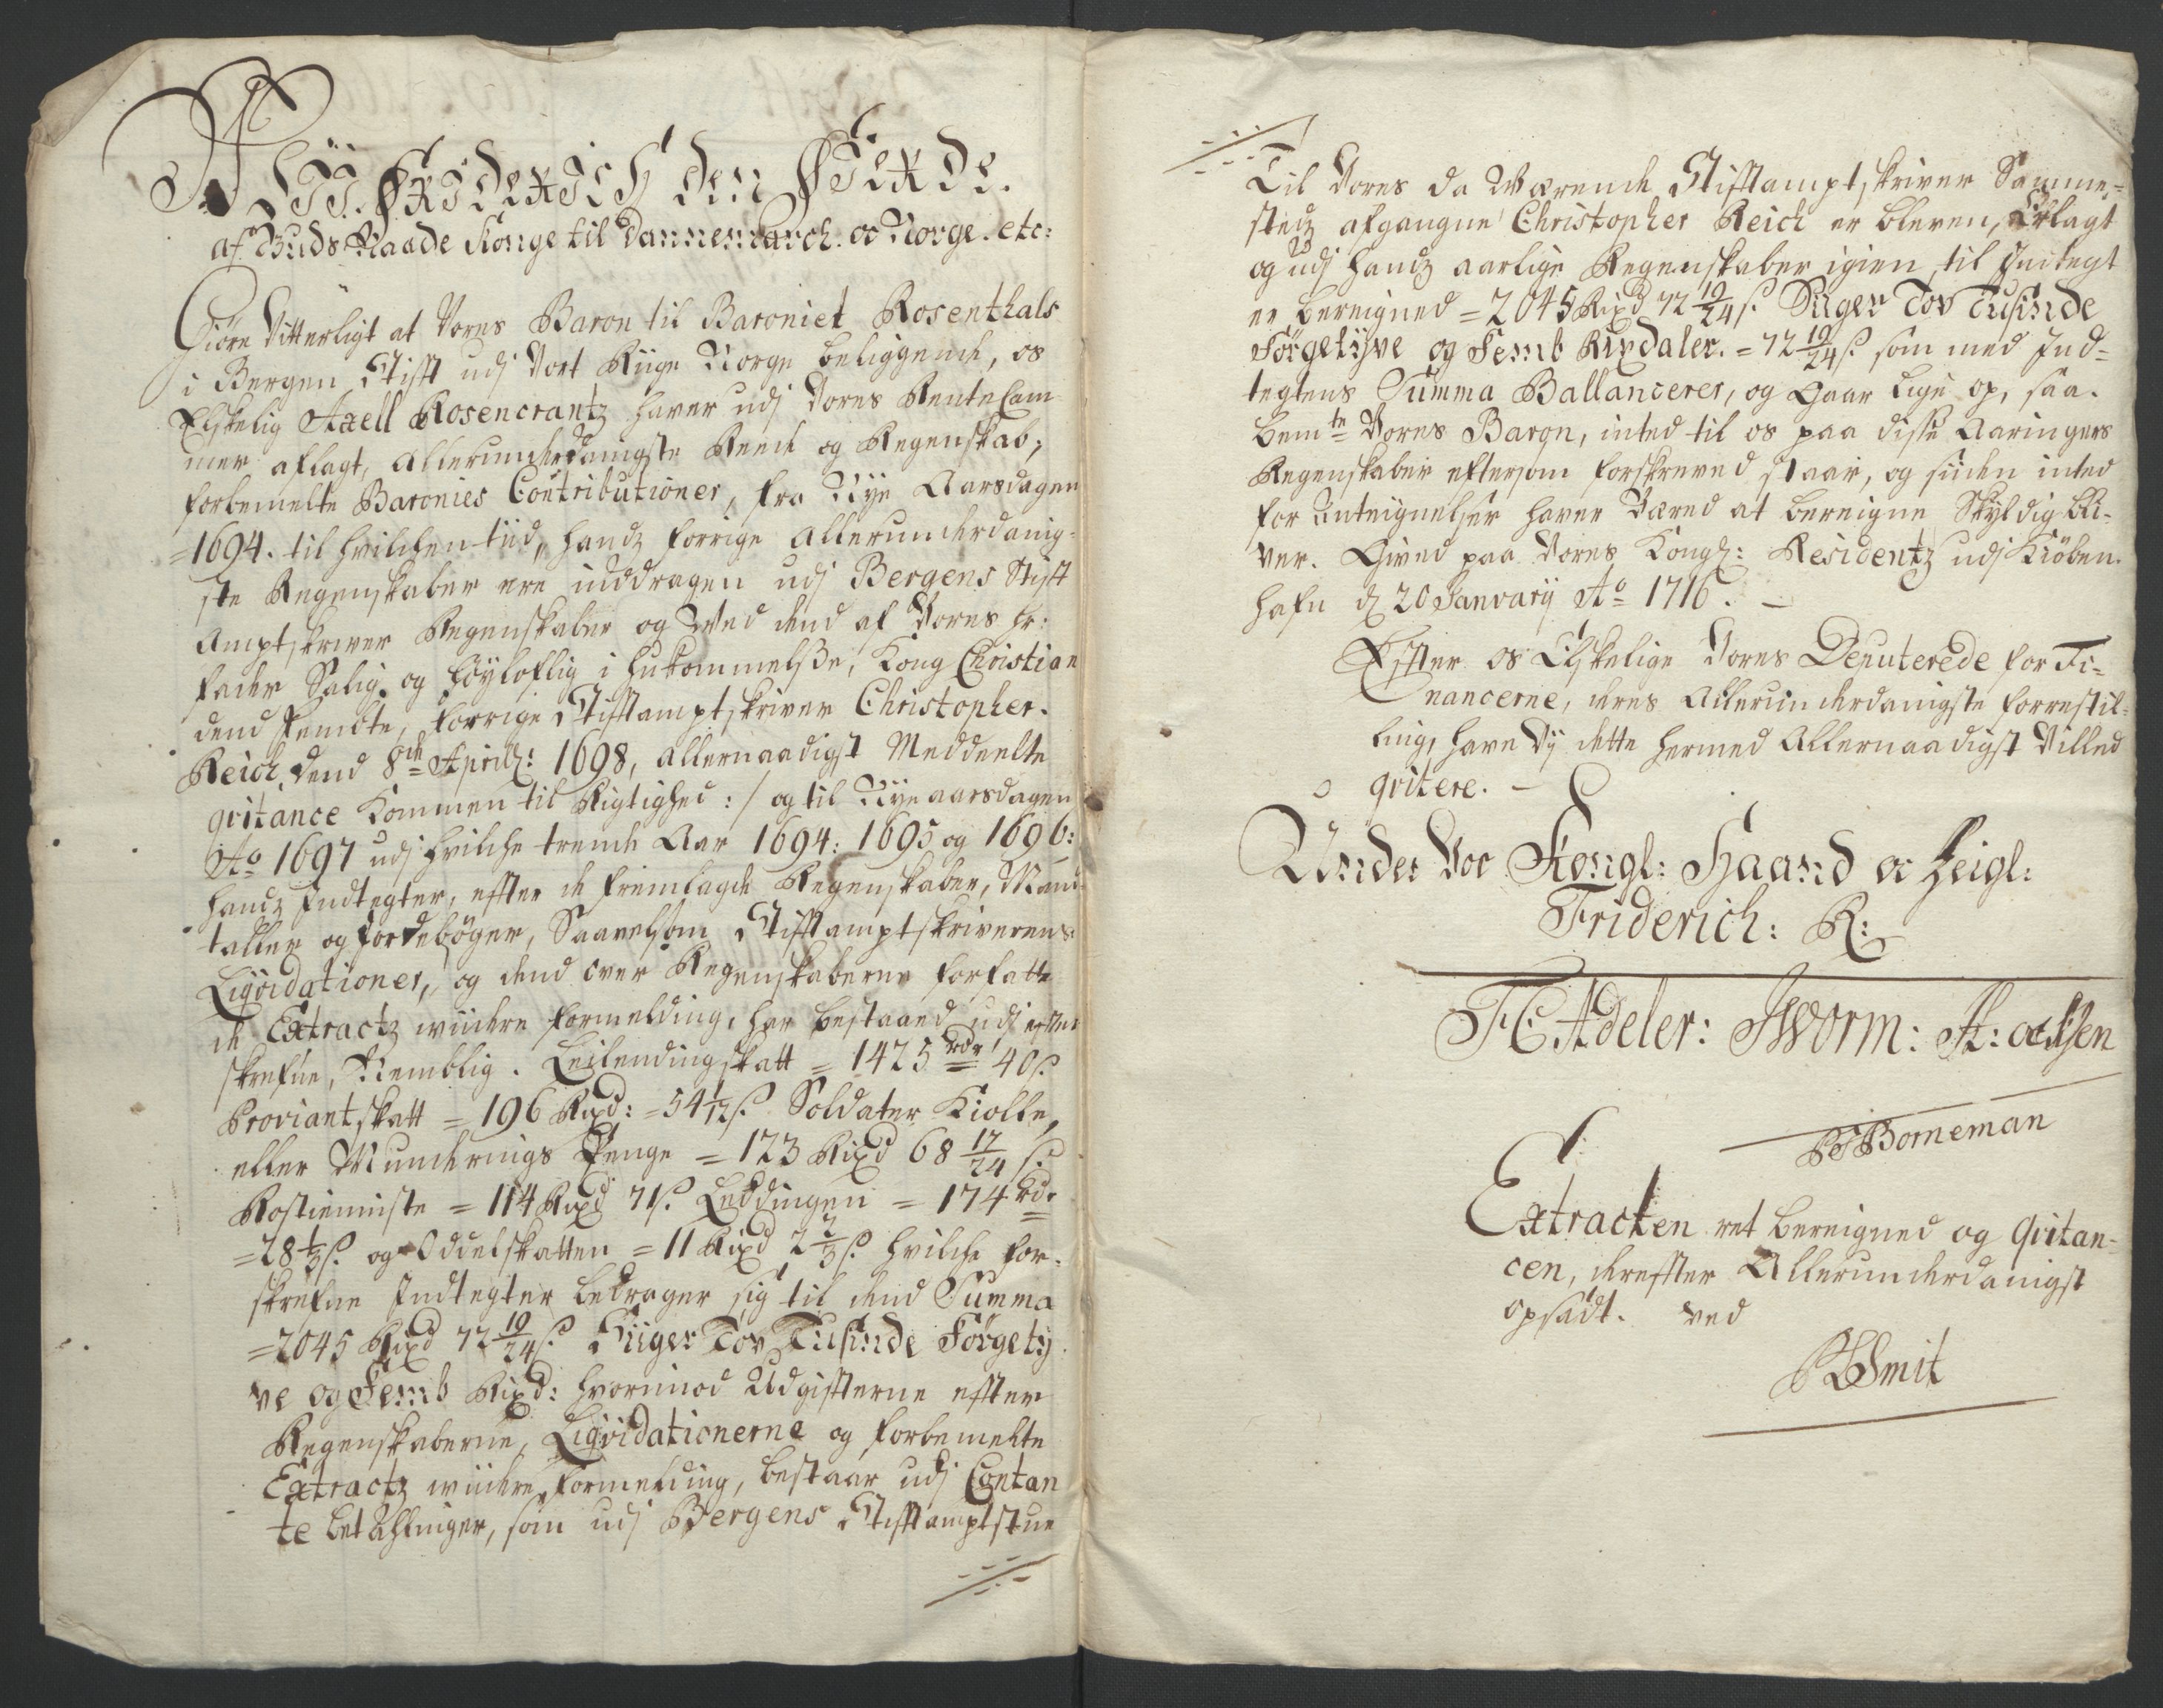 Wii Friderich den Fierde.
af Guds Naade Konge til Dannemarch oc Norge. etc:
Giöre Vitterligt at Vores Baron til Baroniet Rosenthals
i Bergen Stifft udj Vort Riige Norge beliggende, os
Elskelig Axell Rosencrantz haver udj Vores RenteCam-
mer aflagt, allerunderdanigste Reede og Regenskab,
forbemelte Baronies Contributioner, fra Nye Aarsdagen
=1694. til hvilchen tiid, handz forrige allerunderdanig-
ste Regenskaber ere inddragen udj Bergens Stift
Amptskriver Regenskaber og Ved dend af Vores hr:
fader Salig og höyloflig i hukommelsse, Kong Christian
dend femte, forrige Stifftamptskriver Christopher
Reich dend 8de Aprilj: 1698, allernaadigst Meddeelte
qvitance Kommen til Rigtighed :/ og til Nye aarsdagen
Ao 1697 udj hvilche trende Aar 1694: 1695 og 1696:
handz Indtegter, effter de fremlagde Regenskaber, Mand-
taller og Jordebøger, Saavelsom Stifftamptskriverens
Liqvidationer, og dend over Regenskaberne forfatte-
de Extractz viidere formelding, har bestaaed udj effter
skrefne, Nemblig. Leilendingskatt = 1425 rdr 40 s.
Proviantskatt = 196 Rixd: = 54 1/12 s. Soldater Kiolle,
eller Munderings Penge = 123 Rixd 68 17/24 s.
Rostienniste = 114 Rixd 71 s. Leddingen = 174 Rdr
=28 1/3 s. og Oddelskatten = 11 Rixd 2 2/3 s. hvilche for-
skrefne Indtegter bedrager sig til dend Summa
=2045 Rixd 72 19/24 s. Siiger Tov Tusinde Förgety
ve og Femb Rixd: hvorimod Udgiffterne effter
Regenskaberne, Liqvidationerne og forbemelte
Extractz viidere formelding, bestaar udj Contan
te betahlinger, som udj Bergens Stifftamptstue
Til Vores da Værende Stifftamptskriver Samme-
stedz afgangne Christopher Reich er bleven, Erlagt
og udj handz aarlige Regenskaber igien til Indtegt
er bereigned = 2045 Rixd 72 19/24 s. Siiger Tov Tusinde
Förgetÿve og Femb Rixdaler. = 72 19/24 s. som med Ind-
tegtens Summa Ballancerer, og Gaar lige op, saa
bemte Vores Baron, inted til os paa disse Aaringers
Regenskaber eftersom forskreved staar, og siiden inted
for Anteignelser haver Været at bereigne Skyldig bli-
ver. Gived paa Vores Kongl: Residentz udj Kiöben-
hafn d 20 Janvarij Ao 1716. –
Effter os Elskelige Vores Deputerede for Fi-
nancerne, deres Allerunderdanigste forrestil-
ling, have Vÿ dette hermed Allernaadigst Villed
qvitere. –
Under Vor Kongl: Haand oc Zeigl:
Friderich: R:
FC Adeler: JWorm:
Borneman
Extracten ret bereigned og Qvitan-
cen, dereffter Allerunderdanigst
opsadt. ved
Smit